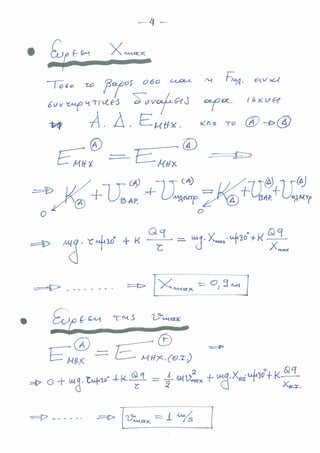 - 4 -
• Εύρεση Xmax
Τόσο το βάρος όσο και η Fηλ. είναι
συντηρητικές δυνάμεις άρα ισχύει
Α.Δ.Ε ΜΗΧ. από το Ⓐ → Ⓓ
E ΜΗΧ (A) = E ΜΗΧ (Δ) ⇒
⇒ K(A) + U ΒΑΡ. (A) + U (A) = K(Δ) + U ΒΑΡ. (Δ) + U (Δ)
0 0
⇒ mg · τ ημ30° + K Qq/τ = mg · Xmax · ημ30° + K Qq/Xmax
⇒ ........ ⇒ Xmax = 0,9 m
• Εύρεση της υmax
E ΜΗΧ (A) = E ΜΗΧ.(Θ.Ι.) (Γ) ⇒
⇒ 0 + mg · τ ημ30° + K Qq/τ = 1/2 mυ²max + mg · XΘΙ · ημ30° + K Qq/XΘ.Ι.
⇒ ...... ⇒ υmax = 1 m/s